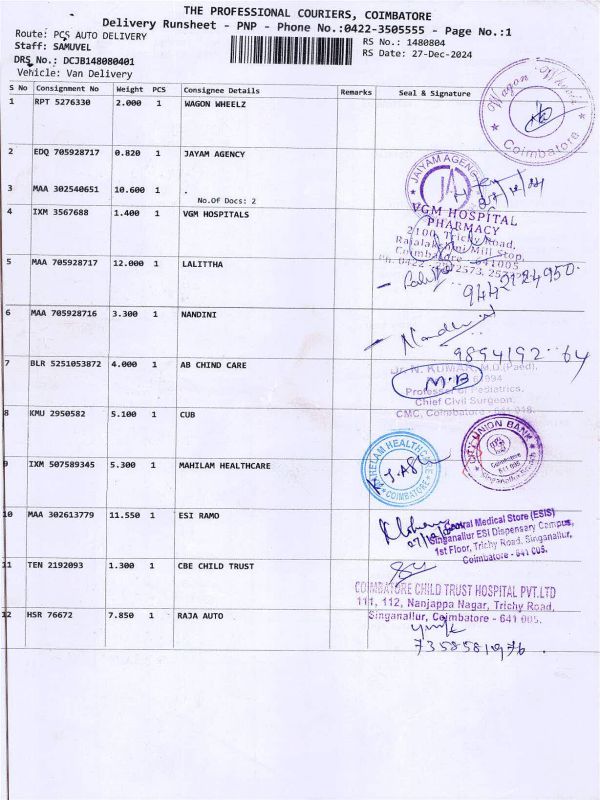 THE PROFESSIONAL COURIERS, COIMBATORE
Delivery Runsheet - PNP - Phone No.:0422-3505555 - Page No.:1
Route: PCS AUTO DELIVERY
Staff: SAMUVEL
RS No.: 1480804
DRS No.: DCJB148080401
RS Date: 27-Dec-2024
Vehicle: Van Delivery
S No Consignment No Weight PCS Consignee Details Remarks Seal & Signature
1 RPT 5276330 2.000 1 WAGON WHEELZ
Coimbatore
2 EDQ 705928717 0.820 1 JAYAM AGENCY
3 MAA 302540651 10.600 1 .
No.Of Docs: 2
4 IXM 3567688 1.400 1 VGM HOSPITALS
VGM HOSPITAL
PHARMACY
2100, Trichy Road,
Rajalakshmi Mill Stop,
Coimbatore - 641005
5 MAA 705928717 12.000 1 LALITTHA
6 MAA 705928716 3.300 1 NANDINI
7 BLR 5251053872 4.000 1 AB CHIND CARE
Dr. N. KUMAR, M.D.(Paed),
Professor of Pediatrics,
Chief Civil Surgeon,
CMC, Coimbatore - 641 018.
8 KMU 2950582 5.100 1 CUB
CITY UNION BANK
Coimbatore
Singanallur Branch
9 IXM 507589345 5.300 1 MAHILAM HEALTHCARE
COIMBATORE
10 MAA 302613779 11.550 1 ESI RAMO
Medical Store (ESIS)
Singanallur ESI Dispensary Campus,
1st Floor, Trichy Road, Singanallur,
Coimbatore - 641 005.
11 TEN 2192093 1.300 1 CBE CHILD TRUST
COIMBATORE CHILD TRUST HOSPITAL PVT.LTD
111, 112, Nanjappa Nagar, Trichy Road,
Singanallur, Coimbatore - 641 005.
12 HSR 76672 7.850 1 RAJA AUTO